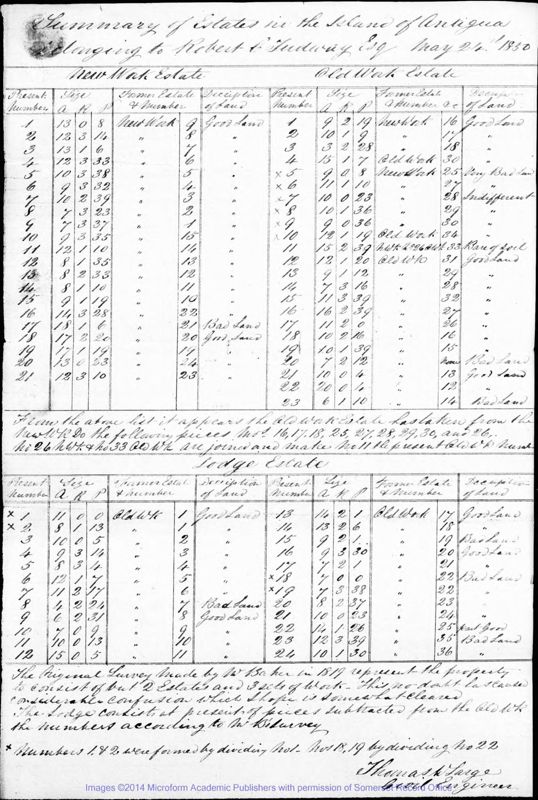 Summary of Estates in the Island of Antigua
Belonging to Robert Tudway Esq May 24th 1830
New Work Estate Old Work Estate
Present Number Size A R P Former Estate & Number Description of Land Present Number Size A R P Former Estate & Number &c Description of Land
1 13 0 8 New Work 9 Good Land 1 9 2 19 New Work 16 Good Land
2 13 3 14 " 8 " 2 10 1 9 " 17 "
3 13 1 6 " 7 " 3 3 2 28 " 18 "
4 12 3 33 " 6 " 4 15 1 7 Old Work 30 "
5 10 3 38 " 5 " ×5 9 0 8 New Work 25 Very Bad Land
6 9 3 32 " 4 " ×6 11 1 10 " 27 "
7 10 2 39 " 3 " ×7 10 0 23 " 28 Indifferent
8 7 3 23 " 2 " ×8 10 1 36 " 29 "
9 7 3 37 " 1 " ×9 9 0 36 " 30 "
10 9 3 35 " 15 " ×10 12 1 19 Old Work 34 "
11 12 1 10 " 14 " 11 15 2 39 33 Rare of Soil
12 8 1 35 " 13 " 12 12 1 20 Old Wk 31 Good Land
13 8 2 33 " 12 " 13 9 1 12 " 29 "
14 8 1 10 " 11 " 14 7 3 16 " 28 "
15 9 1 19 " 10 " 15 11 3 39 " 32 "
16 14 3 28 " 22 " 16 16 2 39 " 27 "
17 18 1 6 " 21 Bad Land 17 11 2 0 " 26 "
18 17 2 20 " 20 Good Land 18 10 2 16 " 16 "
19 17 1 19 " " 19 10 1 39 " 15 "
20 13 0 23 " 24 " 20 7 2 12 " none Bad Land
21 12 3 10 " 23 " 21 10 0 4 " 13 Good Land
22 20 0 4 " 12 "
23 6 1 10 " 14 Bad Land
From the above list it appears the Old Work Estate has taken from the
New Wk Do the following pieces Nos 16, 17, 18, 25, 27, 28, 29, 30, and 26.
No 26 N Wk & No 33 Old Wk are joined and make No 11 the present Old Wk Number
Lodge Estate
Present Number Size A R P Former Estate & number Description of Land Present Number Size A R P Former Estate & Number Description of Land
× 1 11 0 0 Old Wk 1 Good Land 13 14 2 1 Old Wk 17 Good Land
× 2 8 1 13 " 1 " 14 13 2 6 " 18 "
3 10 0 5 " 2 " 15 9 2 1 " 19 Bad Land
4 9 3 14 " 3 " 16 9 3 30 " 20 Good Land
5 8 3 4 " 4 " 17 7 2 1 " 21 "
6 12 1 7 " 5 " ×18 7 0 0 " 22 Bad Land
7 11 2 17 " 6 " ×19 7 3 38 " 22 "
8 4 2 24 " 7 Bad Land 20 8 2 37 " 23 "
9 6 2 31 " 8 Good Land 21 10 0 23 " 24 "
10 0 9 " 9 " 22 14 1 26 " 25 part Good
11 10 0 13 " 10 " 23 12 3 39 " 35 Bad Land
12 15 0 5 " 11 " 24 10 1 30 " 36 "
The Original Survey made by Mr Baker in 1819 represent the property
to consist of but 2 Estates and 3 sets of Work. This no doubt has caused
considerable confusion which I hope is now cleared
The Lodge consist at present of pieces subtracted from the Old Wk
the numbers according to Mr B Survey
× Numbers 1 & 2 were formed by dividing No 1 - Nos 18, 19 by dividing No 22
Thomas Large
Civil Engineer
Images ©2014 Microform Academic Publishers with permission of Somerset Record Office